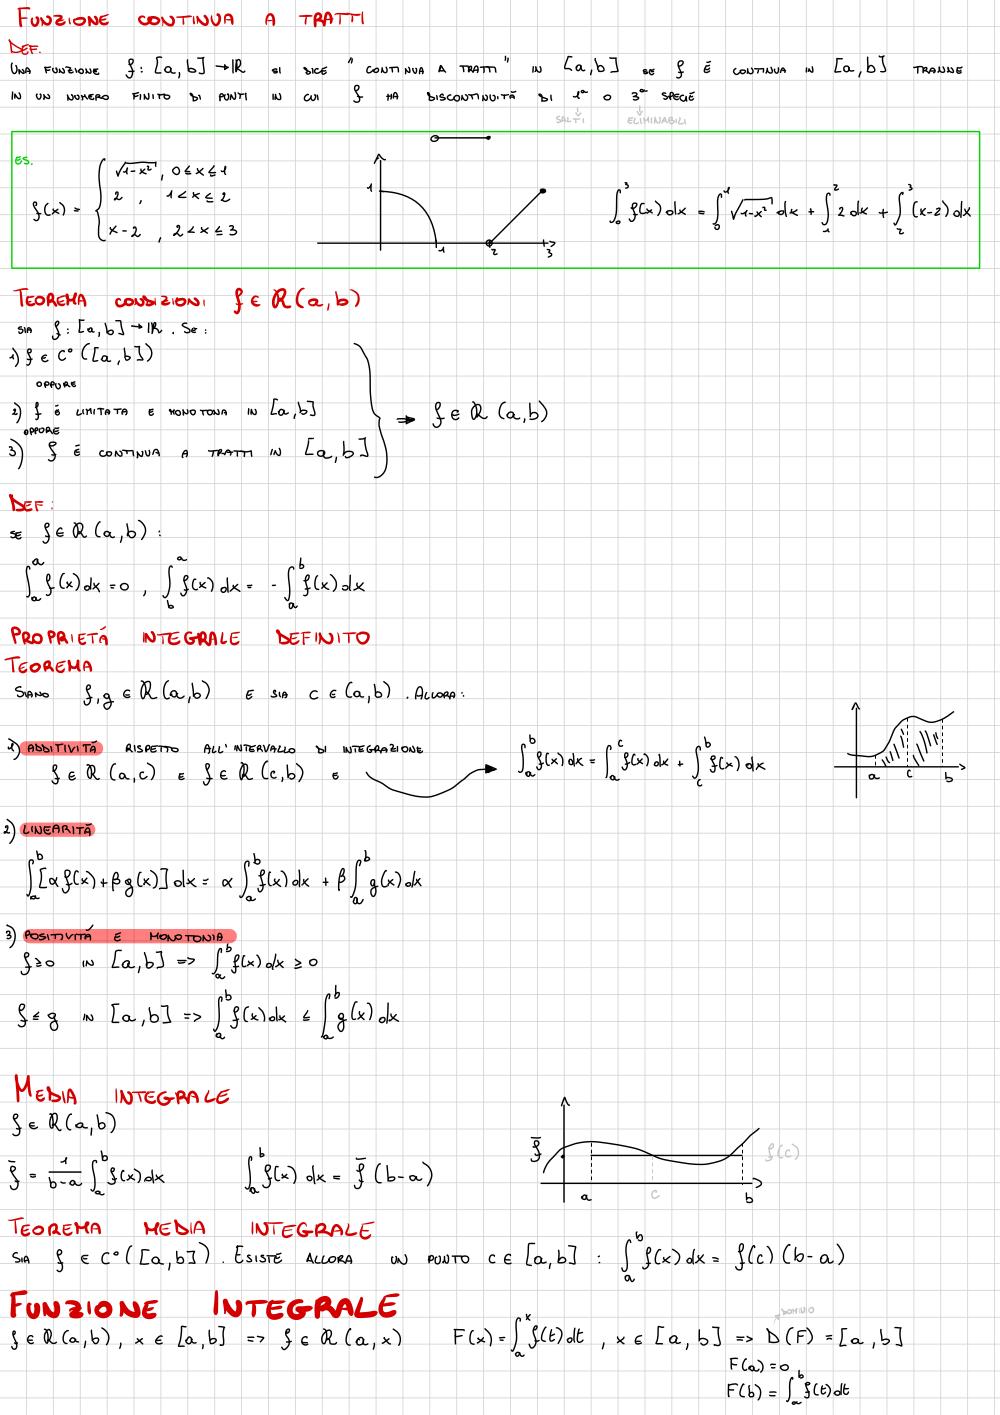 FUNZIONE CONTINUA A TRATTI
DEF.
UNA FUNZIONE f: [a,b] → ℝ SI DICE "CONTINUA A TRATTI" IN [a,b] SE f É CONTINUA IN [a,b] TRANNE
IN UN NUMERO FINITO DI PUNTI IN CUI f HA DISCONTINUITÁ DI 1ª O 3ª SPECIE
↓ SALTI ↓ ELIMINABILI
ES.
f(x) = { √(1-x²), 0≤x≤1
2, 1<x≤2
x-2, 2<x≤3
1 1 2 3
∫₀³ f(x)dx = ∫₀¹ √(1-x²) dx + ∫₁² 2 dx + ∫₂³ (x-2)dx
TEOREMA CONDIZIONI f ∈ R(a,b)
SIA f: [a,b] → ℝ. SE:
1) f ∈ C°([a,b])
OPPURE
2) f É LIMITATA E MONOTONA IN [a,b]
OPPORE
3) f É CONTINUA A TRATTI IN [a,b]
⇒ f ∈ R(a,b)
DEF:
SE f ∈ R(a,b):
∫ₐᵃ f(x)dx = 0, ∫_b^a f(x)dx = -∫_a^b f(x)dx
PROPRIETÁ INTEGRALE DEFINITO
TEOREMA
SIANO f,g ∈ R(a,b) E SIA c ∈ (a,b). ALLORA:
1) ADDITIVITÁ RISPETTO ALL'INTERVALLO DI INTEGRAZIONE
f ∈ R(a,c) E f ∈ R(c,b) E → ∫_a^b f(x)dx = ∫_a^c f(x)dx + ∫_c^b f(x)dx
a c b
2) LINEARITÁ
∫_a^b [αf(x)+βg(x)]dx = α∫_a^b f(x)dx + β∫_a^b g(x)dx
3) POSITIVITÁ E MONOTONIA
f≥0 IN [a,b] => ∫_a^b f(x)dx ≥ 0
f≤g IN [a,b] => ∫_a^b f(x)dx ≤ ∫_a^b g(x)dx
MEDIA INTEGRALE
f ∈ R(a,b)
f̄ = 1/(b-a) ∫_a^b f(x)dx ∫_a^b f(x)dx = f̄(b-a)
f̄ f(c)
a c b
TEOREMA MEDIA INTEGRALE
SIA f ∈ C°([a,b]). ESISTE ALLORA UN PUNTO c ∈ [a,b] : ∫_a^b f(x)dx = f(c)(b-a)
FUNZIONE INTEGRALE
DOMINIO
f ∈ R(a,b), x ∈ [a,b] => f ∈ R(a,x) F(x) = ∫_a^x f(t)dt, x ∈ [a,b] => D(F) = [a,b]
F(a) = 0
F(b) = ∫_a^b f(t)dt